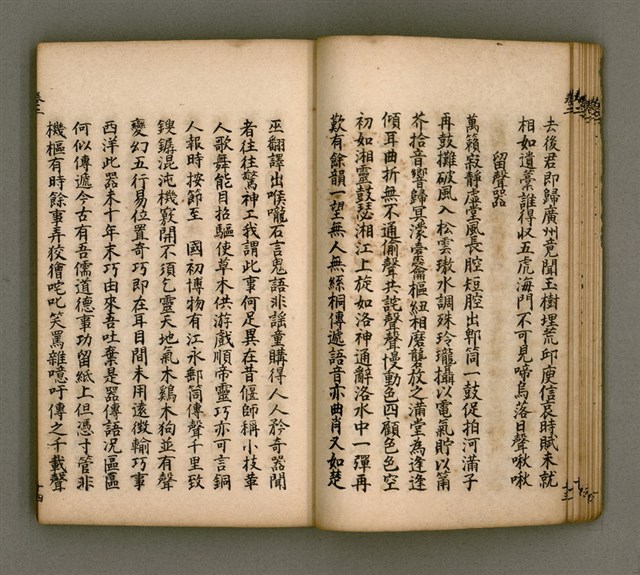 去後君即歸廣州竟聞玉樹埋荒邱庾信哀時賦未就
相如遺稾誰得収五虎海門不可見啼烏落日聲啾啾
留聲器
萬籟寂靜虛堂風長腔短腔出郫筒一鼓促拍河滿子
再鼓攤破風入松雲璈水調殊玲瓏攝以電氣貯以筩
芥拾音響歸冥濛橐籥樞紐相磨礱放之滿堂為逢逢
傾耳曲折無不通偷聲共詫聲聲慢動色四顧色色空
初如湘靈鼓瑟湘江上旋如洛神通辭洛水中一彈再
歎有餘韻一望無人無絲桐傳遞語音亦曲肖又如楚
巫翻譯出喉嚨石言鬼語非謡童購得人人矜奇器聞
者往往驚神工我謂此事何足異在昔偃師稱小技草
人歌舞能目招驅使草木供游戲順帝靈巧亦可言銅
人報時按節至 國初博物有江永郵筒傳聲千里致
鎪鏬混沌機竅開不須乞靈天地氣木鷄木狗並有聲
變幻五行易位置奇巧即在耳目間未用遠徴輸巧事
西洋此器未十年末巧由來吾吐棄是器傳語况區區
何似傳遞今古有吾儒道德事功留紙上但憑寸管非
機樞有時餘事弄狡獪咤叱笑罵雜噫吁傳之千載聲
卷二
十四